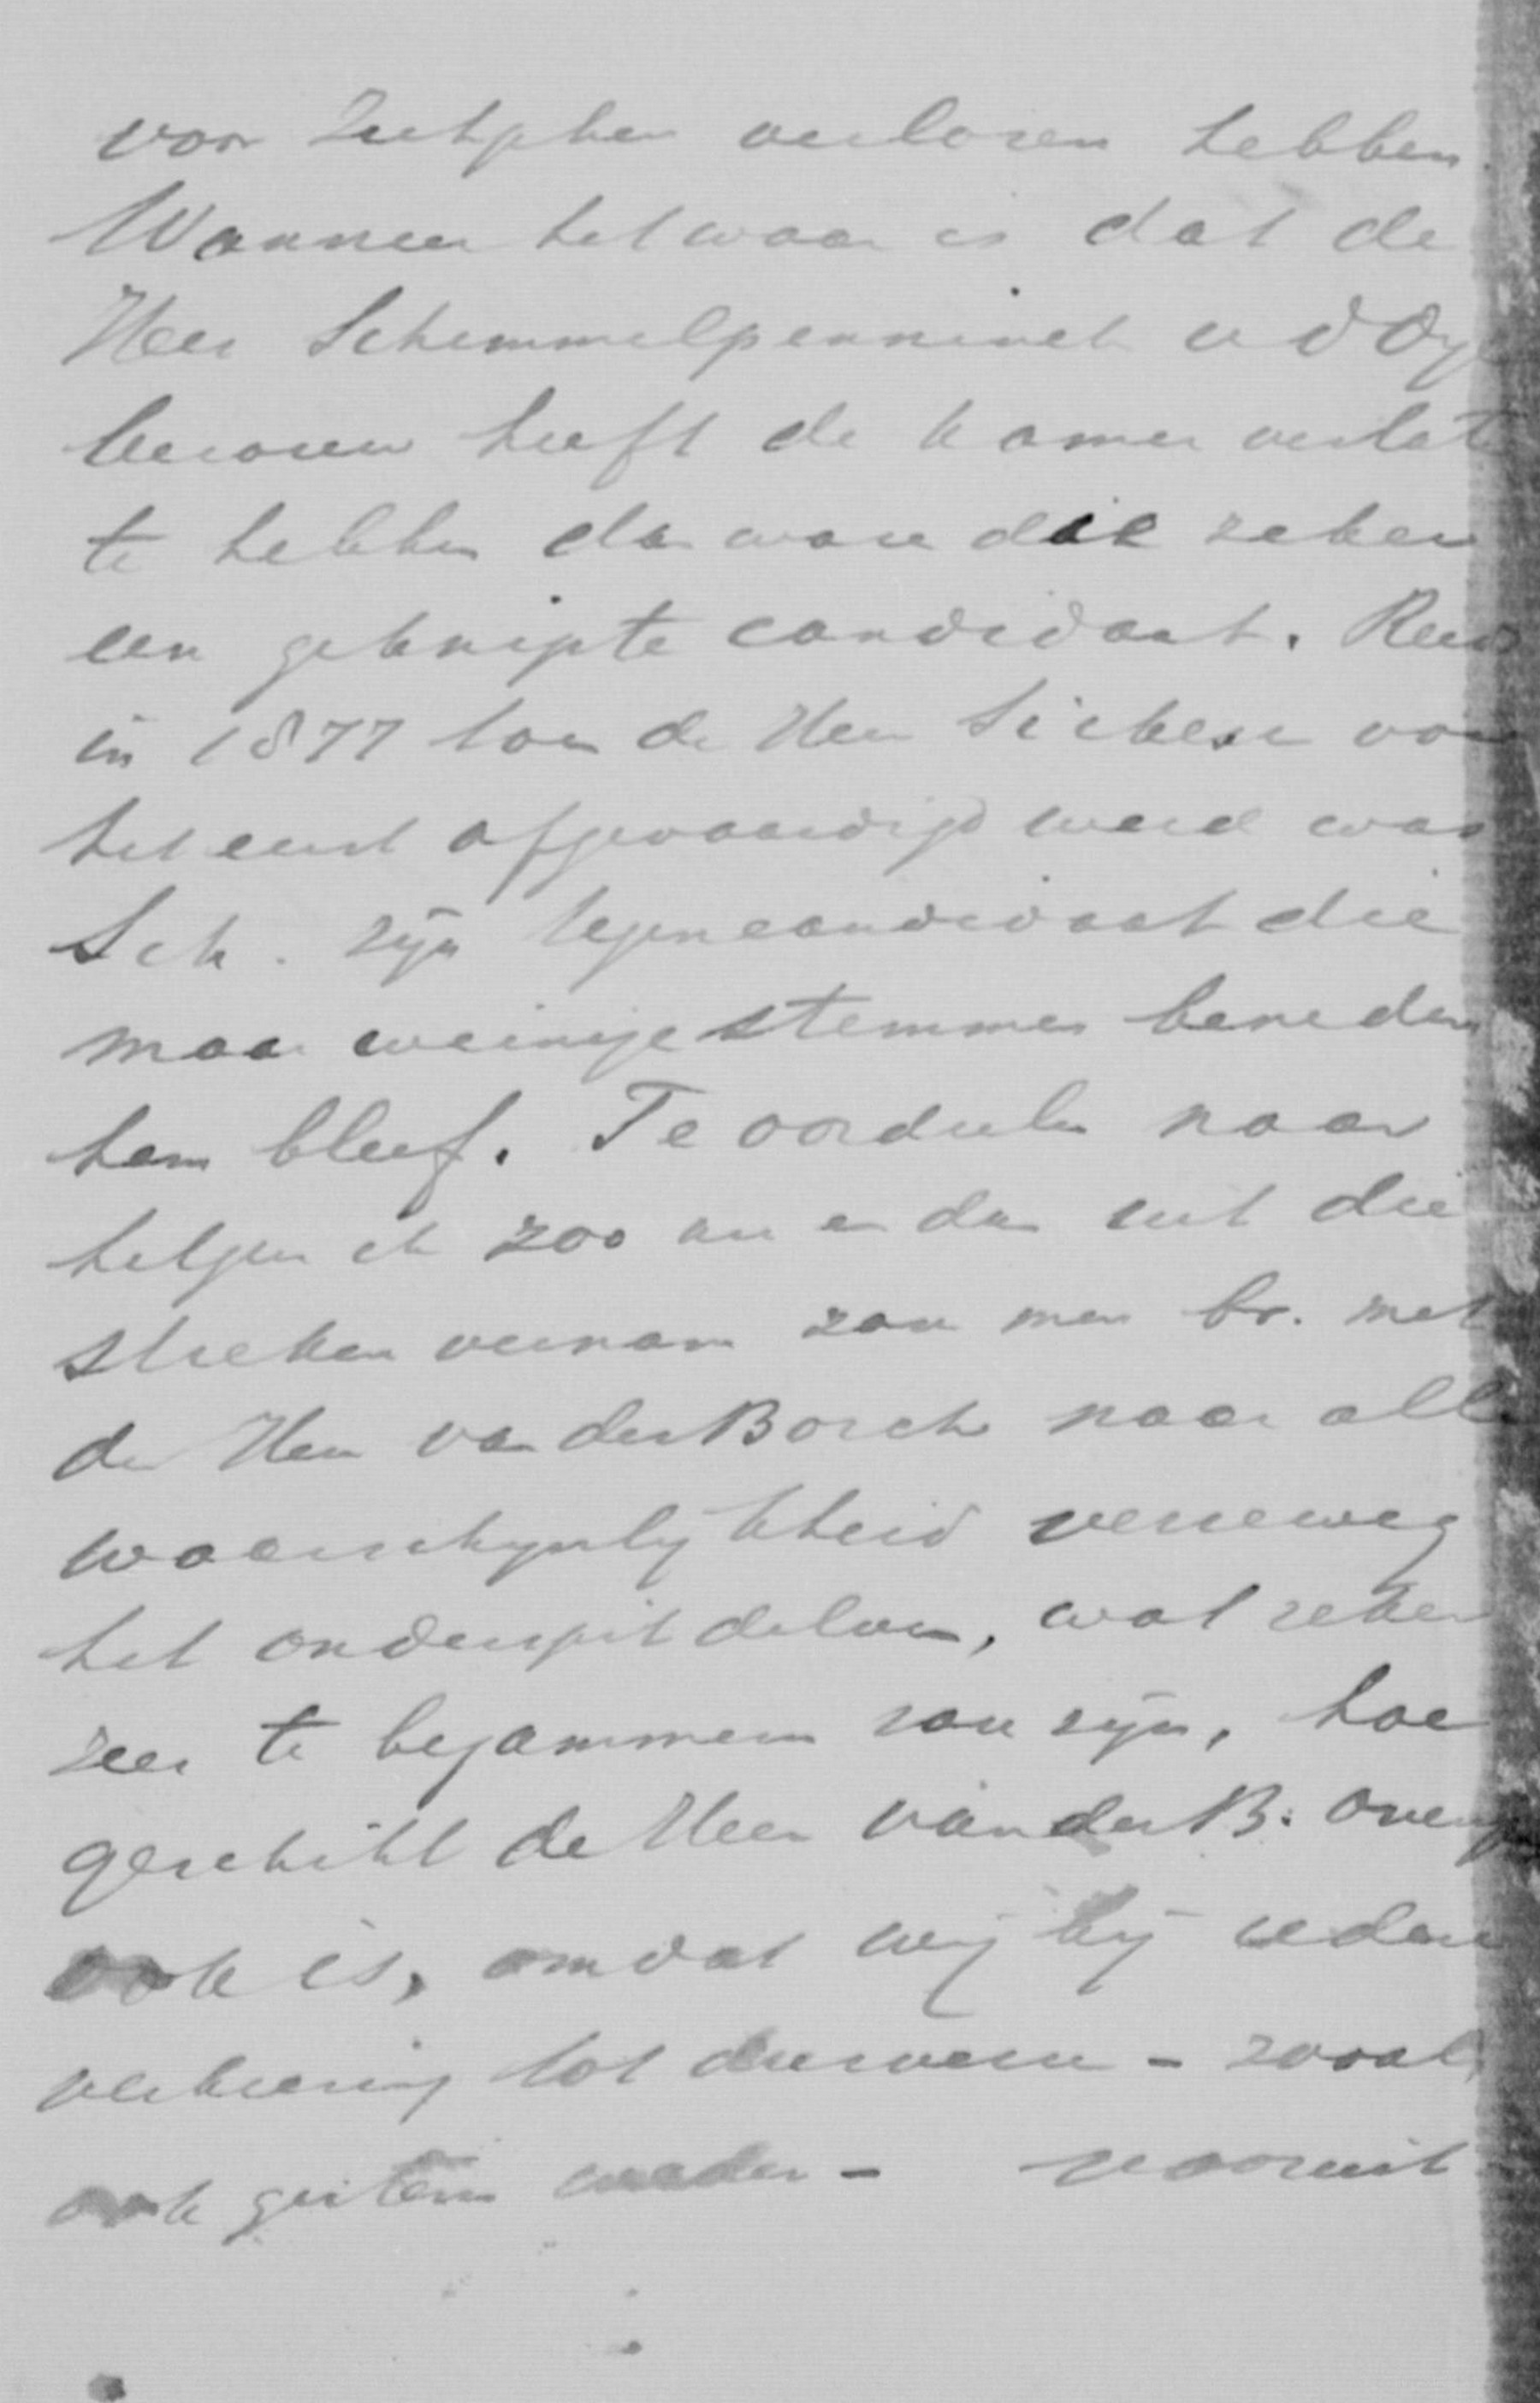 voor Zutphen verloren hebben.
Wanneer het waar is dat de
Heer Schimmelpenninck v d Oye
berouw heeft de kamer verlat
te hebben dan ware die zeker
een geknipte candidaat. Reeds
in 1877 toen de Heer Sickesz voor
het eerst afgevaardigd werd was
Sch. zijn tegencandidaat die
maar weinige stemmen beneden
hem bleef. Te oordeelen naar
hetgeen ik zoo nu en dan uit die
streken vernam zou men br. met
den Heer van der Borch naar alle
waarschijnlijkheid verreweg
het onderspit delven, wat zeker
zeer te bejammeren zou zijn, hoe
geschikt de Heer van der B. overig
ook is, omdat wij bij iedere
verkiezing tot dusverre - zooals
ook gisteren weder - vooruit